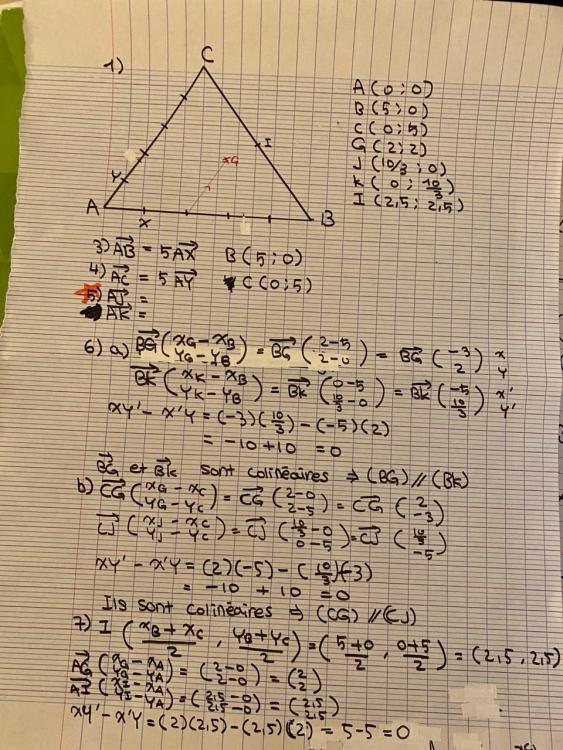 1)
C
I
G
Y
A
X
B
A (0 ; 0)
B (5 ; 0)
C (0 ; 5)
G (2 ; 2)
J (10/3 ; 0)
K (0 ; 10/3)
I (2,5 ; 2,5)
3) AB = 5AX B (5 ; 0)
4) AC = 5 AY C (0 ; 5)
5) AJ =
AK =
6) a) BG (xG - xB / yG - yB) = BG (2-5 / 2-0) = BG (-3 / 2) x y
BK (xK - xB / yK - yB) = BK (0-5 / 10/3 - 0) = BK (-5 / 10/3) x' y'
xy' - x'y = (-3)(10/3) - (-5)(2)
= -10 + 10 = 0
BG et BK sont colinéaires ⇒ (BG) // (BK)
b) CG (xG - xC / yG - yC) = CG (2-0 / 2-5) = CG (2 / -3)
CJ (xJ - xC / yJ - yC) = CJ (10/3 - 0 / 0-5) = CJ (10/3 / -5)
xy' - x'y = (2)(-5) - (10/3)(-3)
= -10 + 10 = 0
Ils sont colinéaires ⇒ (CG) // (CJ)
7) I (xB + xC / 2 , yB + yC / 2) = (5+0 / 2 , 0+5 / 2) = (2,5 , 2,5)
AG (xG - xA / yG - yA) = (2-0 / 2-0) = (2 / 2)
AI (xI - xA / yI - yA) = (2,5 - 0 / 2,5 - 0) = (2,5 / 2,5)
xy' - x'y = (2)(2,5) - (2,5)(2) = 5 - 5 = 0